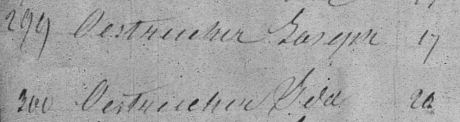 299 Oestreicher Joseph 17
300 Oestreicher Ida 20